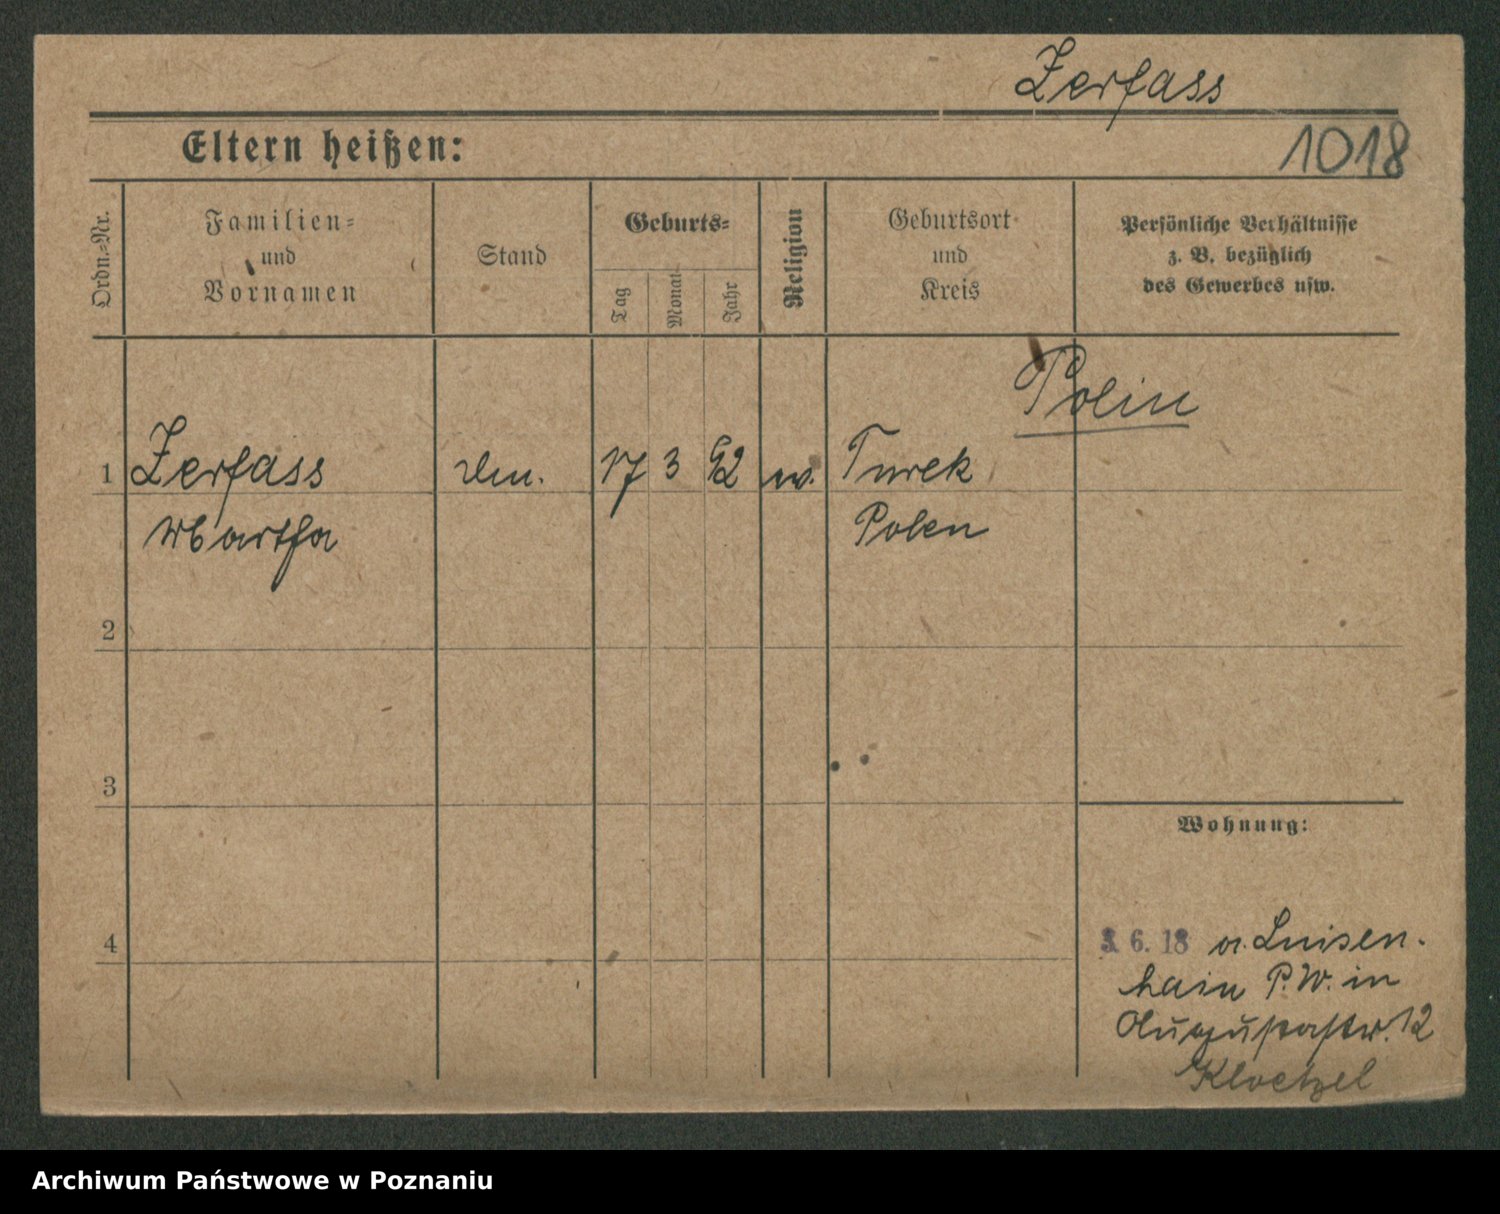 Zerfass
Eltern heißen:
1018
Ordn.-Nr.
Familien-
und
Vornamen
Stand
Geburts-
Tag
Monat
Jahr
Religion
Geburtsort
und
Kreis
Persönliche Verhältnisse
z. B. bezüglich
des Gewerbes usw.
Polin
1 Zerfass 17 3 92 Turek
Martha Polen
2
3
Wohnung:
4
3. 6. 18 a. Luisen-
hain P.W. in
Augustastr. 12
Kloetzel
Archiwum Państwowe w Poznaniu